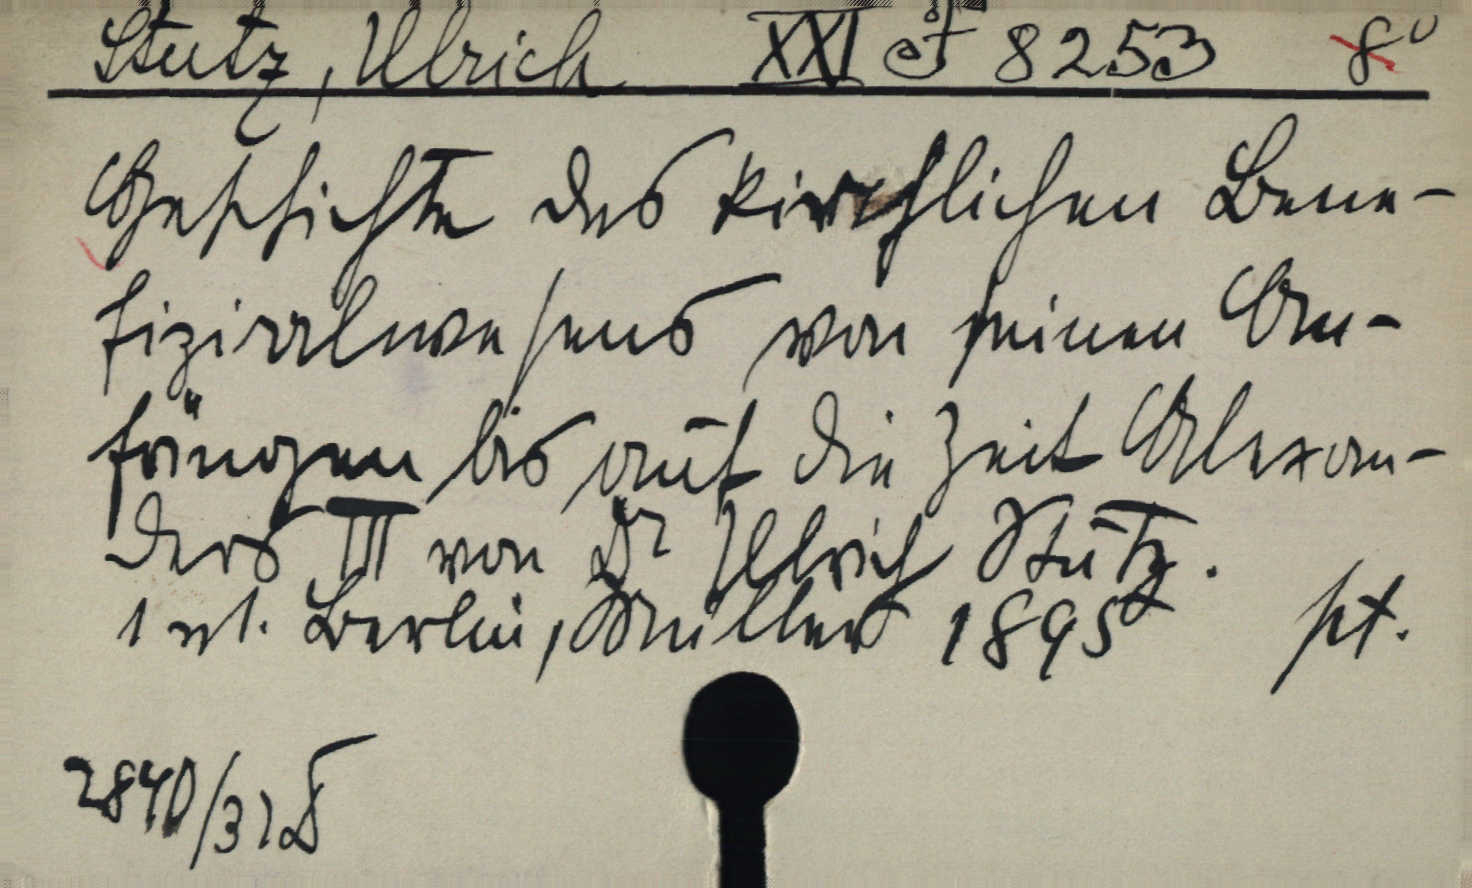 Stutz, Ulrich XXI 8253 8°
Geschichte des kirchlichen Bene-
fizialwesens von seinen An-
fängen bis auf die Zeit Alexan-
ders III von Dr Ulrich Stutz.
1 Berlin, Müller 1895
2840/31